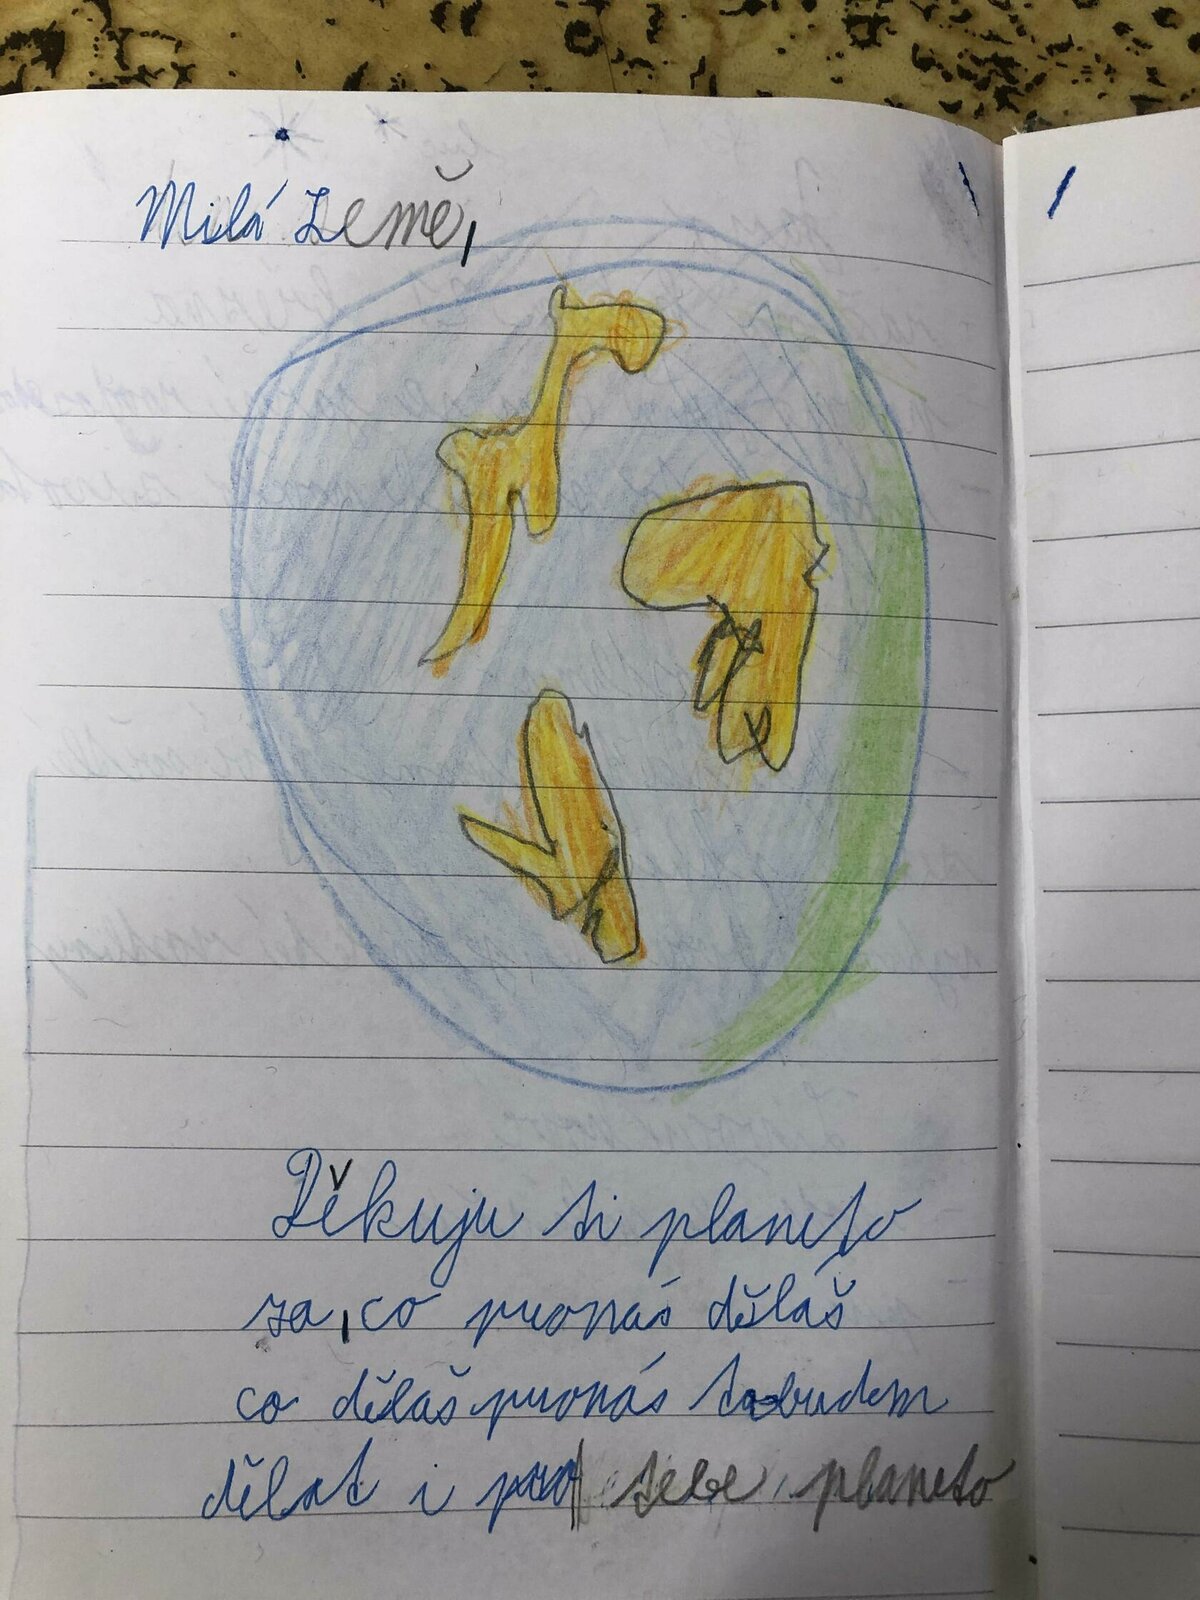 Milá Země,
Děkuju ti planeto
za, co pronás děláš
co děláš pronás tobudem
dělat i pro tebe planeto